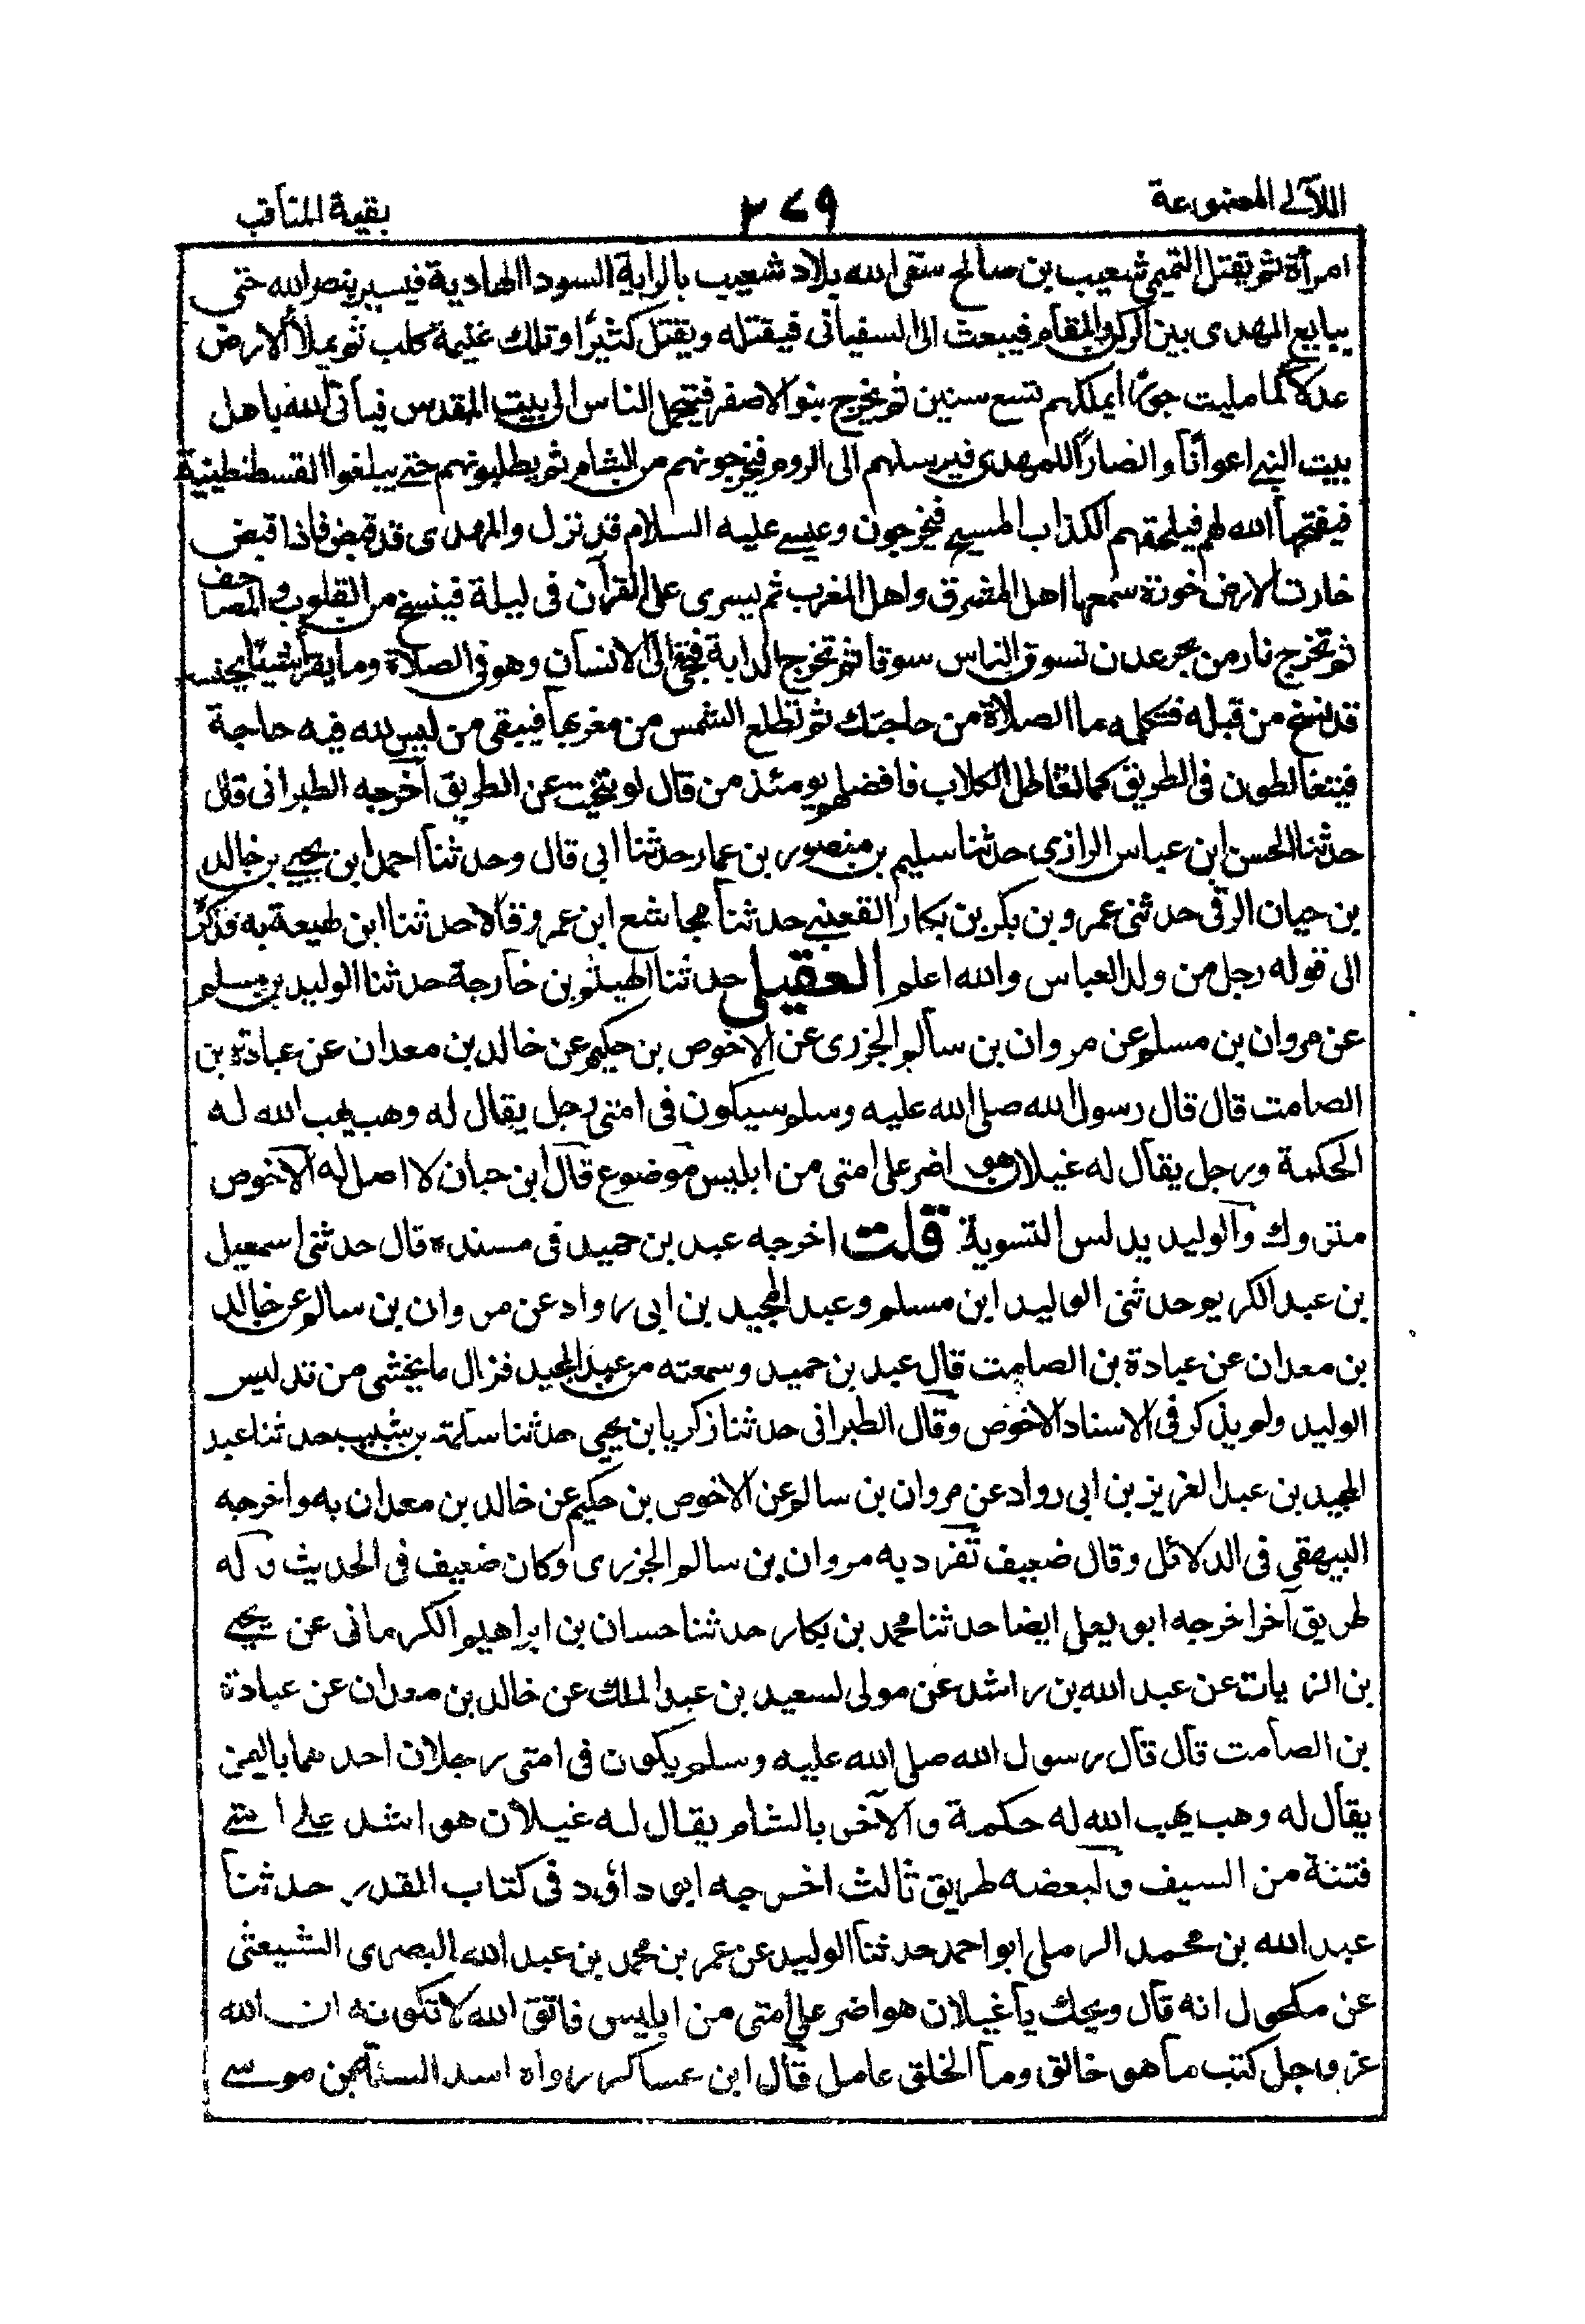 اللآلى المصنوعة
٢٧٩
بقية المناقب
امرأة ثم يقتل التميمى شعيب بن صالح سقى الله بلاد شعيب بالراية السودا الهادية فيسير بنصر الله حتى
يبايع المهدى بين الركن والمقام فيبعث الى السفيانى فيقتله ويقتل كثيرًا وتلك غنيمة كلب ثم يملأ الارض
عدلا كما مليت جورًا يملكهم تسع سنين ثم يخرج بنو الاصفر فيتحمل الناس الى بيت المقدس فيأتى الله باهل
بيت النبى اعوانًا وانصارًا للمهدى فيرسلهم الى الروم فيخرجونهم من الشام ثم يطلبونهم حتى يبلغوا القسطنطينية
فيفتحها الله لهم فيلحقهم الكذاب المسيح فيخرجون وعيسى عليه السلام قد نزل والمهدى قد قبض فاذا قبض
خارت الارض خورة سمعها اهل المشرق واهل المغرب ثم يسرى على القرآن فى ليلة فينسخ من القلوب والمصاحف
ثم تخرج نار من بحر عدن تسوق الناس سوقا ثم تخرج الدابة فتجئ الى الانسان وهو فى الصلاة وما يقرأ شيئا يجنسه
قد نسخ من قبله فتكلمه ما الصلاة من حاجتك ثم تطلع الشمس من مغربها فيبقى من ليس لله فيه حاجة
فيتغالطون فى الطريق كما تغالط الكلاب فافضلهم يومئذ من قال لو تنحيت عن الطريق اخرجه الطبرانى قال
حدثنا الحسن ابن عباس الرازى حدثنا سليم بن منصور بن عمار حدثنا ابى قال وحدثنا احمد ابن يحيى بن خالد
بن حيان الرقى حدثنى عمرو بن بكر بن بكار القعنبى حدثنا مجاشع ابن عمرو قالا حدثنا ابن لهيعة به فذكر
الى قوله رجل من ولد العباس والله اعلم العقيلى حدثنا الهيثم بن خارجة حدثنا الوليد بن مسلم
عن مروان بن مسلم عن مروان بن سالم الجزرى عن الاخوص بن حكيم عن خالد بن معدان عن عبادة بن
الصامت قال قال رسول الله صلى الله عليه وسلم سيكون فى امتى رجل يقال له وهب يهب الله له
الحكمة ورجل يقال له غيلان هو اضر على امتى من ابليس موضوع قال ابن حبان لا اصل له الاخوص
متروك والوليد يدلس التسوية قلت اخرجه عبد بن حميد فى مسنده قال حدثنى اسمعيل
بن عبد الكريم وحدثنى الوليد ابن مسلم وعبد المجيد بن ابى رواد عن مروان بن سالم عن خالد
بن معدان عن عبادة بن الصامت قال عبد بن حميد وسمعته من عبد المجيد فزال ما يخشى من تدليس
الوليد ولم يذكر فى الاسناد الاخوص وقال الطبرانى حدثنا زكريا ابن يحيى حدثنا سلمة بن شبيب حدثنا عبد
المجيد بن عبد العزيز بن ابى رواد عن مروان بن سالم عن الاخوص بن حكيم عن خالد بن معدان به واخرجه
البيهقى فى الدلائل وقال ضعيف تفرد به مروان بن سالم الجزرى وكان ضعيف فى الحديث وله
طريق آخر اخرجه ابو يعلى ايضا حدثنا محمد بن بكار حدثنا حسان بن ابراهيم الكرمانى عن يحيى
بن الزيات عن عبد الله بن راشد عن مولى لسعيد بن عبد الملك عن خالد بن معدان عن عبادة
بن الصامت قال قال رسول الله صلى الله عليه وسلم يكون فى امتى رجلان احدهما باليمن
يقال له وهب يهب الله له حكمة والآخر بالشام يقال له غيلان هو اشد على امتى
فتنة من السيف ولبعضه طريق ثالث اخرجه ابو داؤد فى كتاب القدر حدثنا
عبد الله بن محمد الرملى ابو احمد حدثنا الوليد عن عمر بن محمد بن عبد الله البصرى الشيعثى
عن مكحول انه قال ويحك يا غيلان هو اضر على امتى من ابليس فاتق الله لا تكونه ان الله
عز وجل كتب ما هو خالق وما الخلق عامل قال ابن عساكر رواه اسد السنة بن موسى